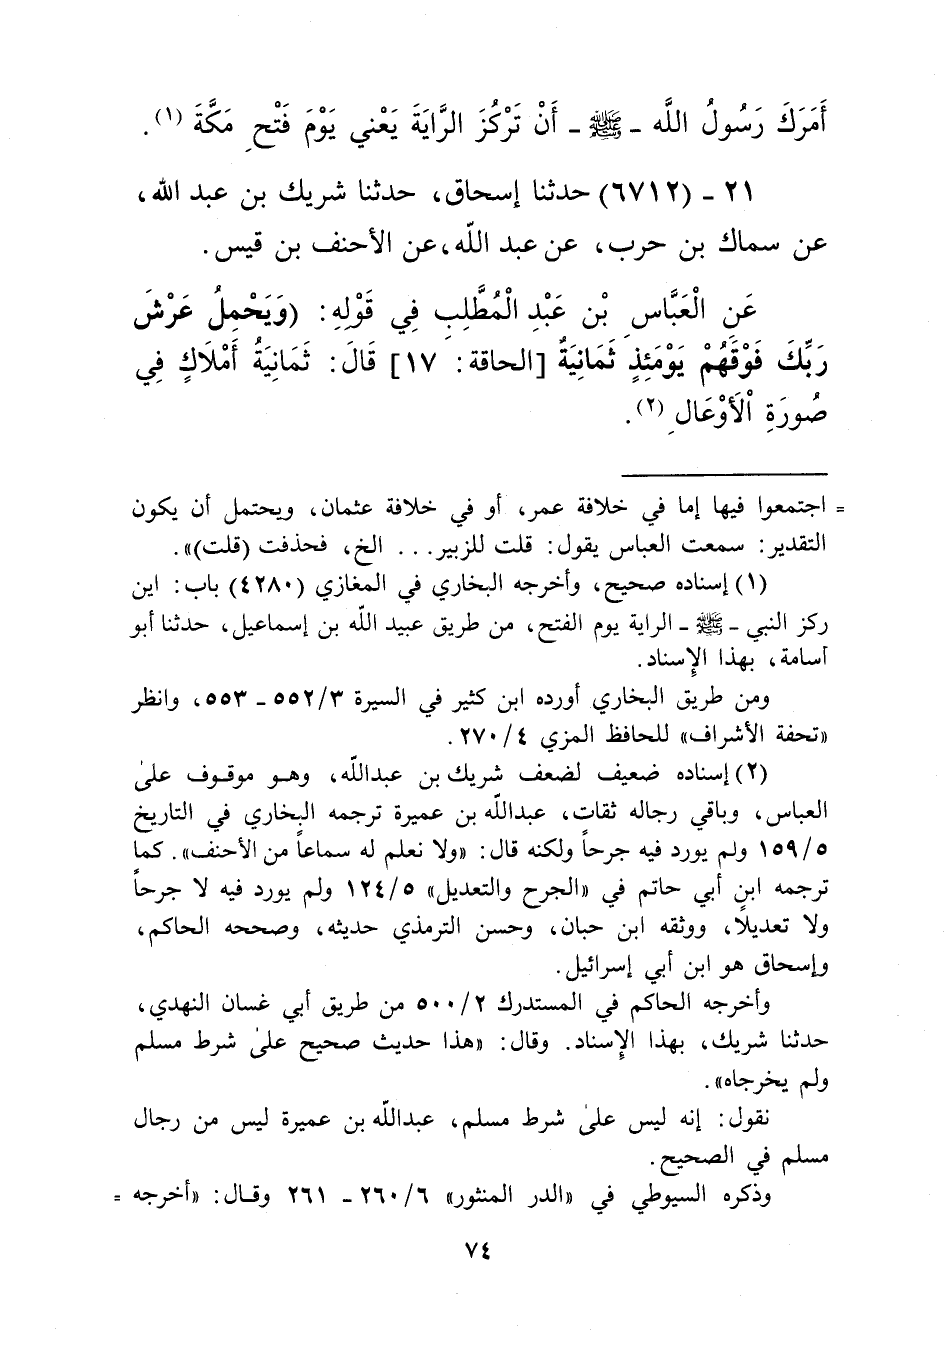 أَمَرَكَ رَسُولُ اللَّه ـ ﷺ ـ أَنْ تَرْكُزَ الرَّايَةَ يَعْني يَوْمَ فَتْحِ مَكَّةَ (١).
٢١ ـ (٦٧١٢) حدثنا إسحاق، حدثنا شريك بن عبد الله،
عن سماك بن حرب، عن عبد اللّه،عن الأحنف بن قيس.
عَنِ الْعَبَّاسِ بْنِ عَبْدِ الْمُطَّلِبِ فِي قَوْلِهِ: (وَيَحْمِلُ عَرْشَ
رَبِّكَ فَوْقَهُمْ يَوْمَئِذٍ ثَمَانِيَةٌ [الحاقة: ١٧] قَالَ: ثَمَانِيَةُ أَمْلَاكٍ فِي
صُورَةِ اْلَأوْعَالِ (٢).
= اجتمعوا فيها إما في خلافة عمر، أو في خلافة عثمان، ويحتمل أن يكون
التقدير: سمعت العباس يقول: قلت للزبير... الخ، فحذفت (قلت)».
(١) إسناده صحيح، وأخرجه البخاري في المغازي (٤٢٨٠) باب: اين
ركز النبي ـ ﷺ ـ الراية يوم الفتح، من طريق عبيد اللّه بن إسماعيل، حدثنا أبو
أسامة، بهذا الإسناد.
ومن طريق البخاري أورده ابن كثير في السيرة ٥٥٢/٣ ـ ٥٥٣، وانظر
«تحفة الأشراف» للحافظ المزي ٢٧٠/٤.
(٢) إسناده ضعيف لضعف شريك بن عبداللّه، وهو موقوف علىٰ
العباس، وباقي رجاله ثقات، عبداللّه بن عميرة ترجمه البخاري في التاريخ
١٥٩/٥ ولم يورد فيه جرحاً ولكنه قال: «ولا نعلم له سماعاً من الأحنف». كما
ترجمه ابن أبي حاتم في «الجرح والتعديل» ١٢٤/٥ ولم يورد فيه لا جرحاً
ولا تعديلًا، ووثقه ابن حبان، وحسن الترمذي حديثه، وصححه الحاكم،
وإسحاق هو ابن أبي إسرائيل.
وأخرجه الحاكم في المستدرك ٥٠٠/٢ من طريق أبي غسان النهدي،
حدثنا شريك، بهذا الإسناد. وقال: «هذا حديث صحيح علىٰ شرط مسلم
ولم يخرجاه».
نقول: إنه ليس علىٰ شرط مسلم، عبداللّه بن عميرة ليس من رجال
مسلم في الصحيح.
وذكره السيوطي في «الدر المنثور» ٢٦٠/٦ ـ ٢٦١ وقال: «أخرجه =
٧٤